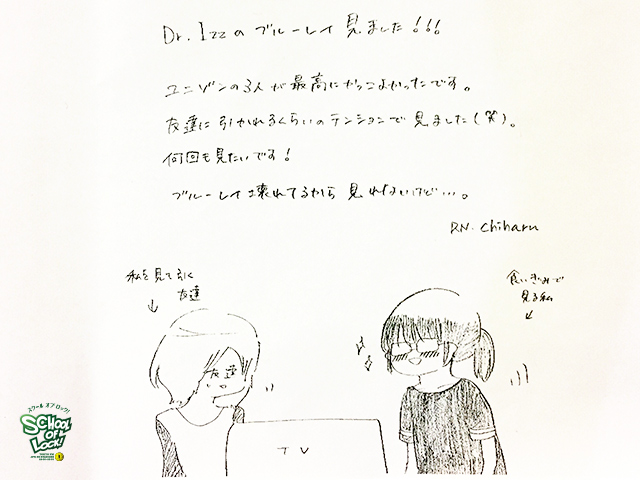 Dr.Izzのブルーレイ見ました!!!
ユニゾンの3人が最高にかっこよかったです。
友達に引かれるくらいのテンションで見ました(笑)。
何回も見たいです!
ブルーレイ壊れてるから見れないけど…。
RN.Chiharu
私を見て引く
友達
食いぎみで
見る私
友達
TV
スクール オブ ロック!
SCHOOL
OF
LOCK!